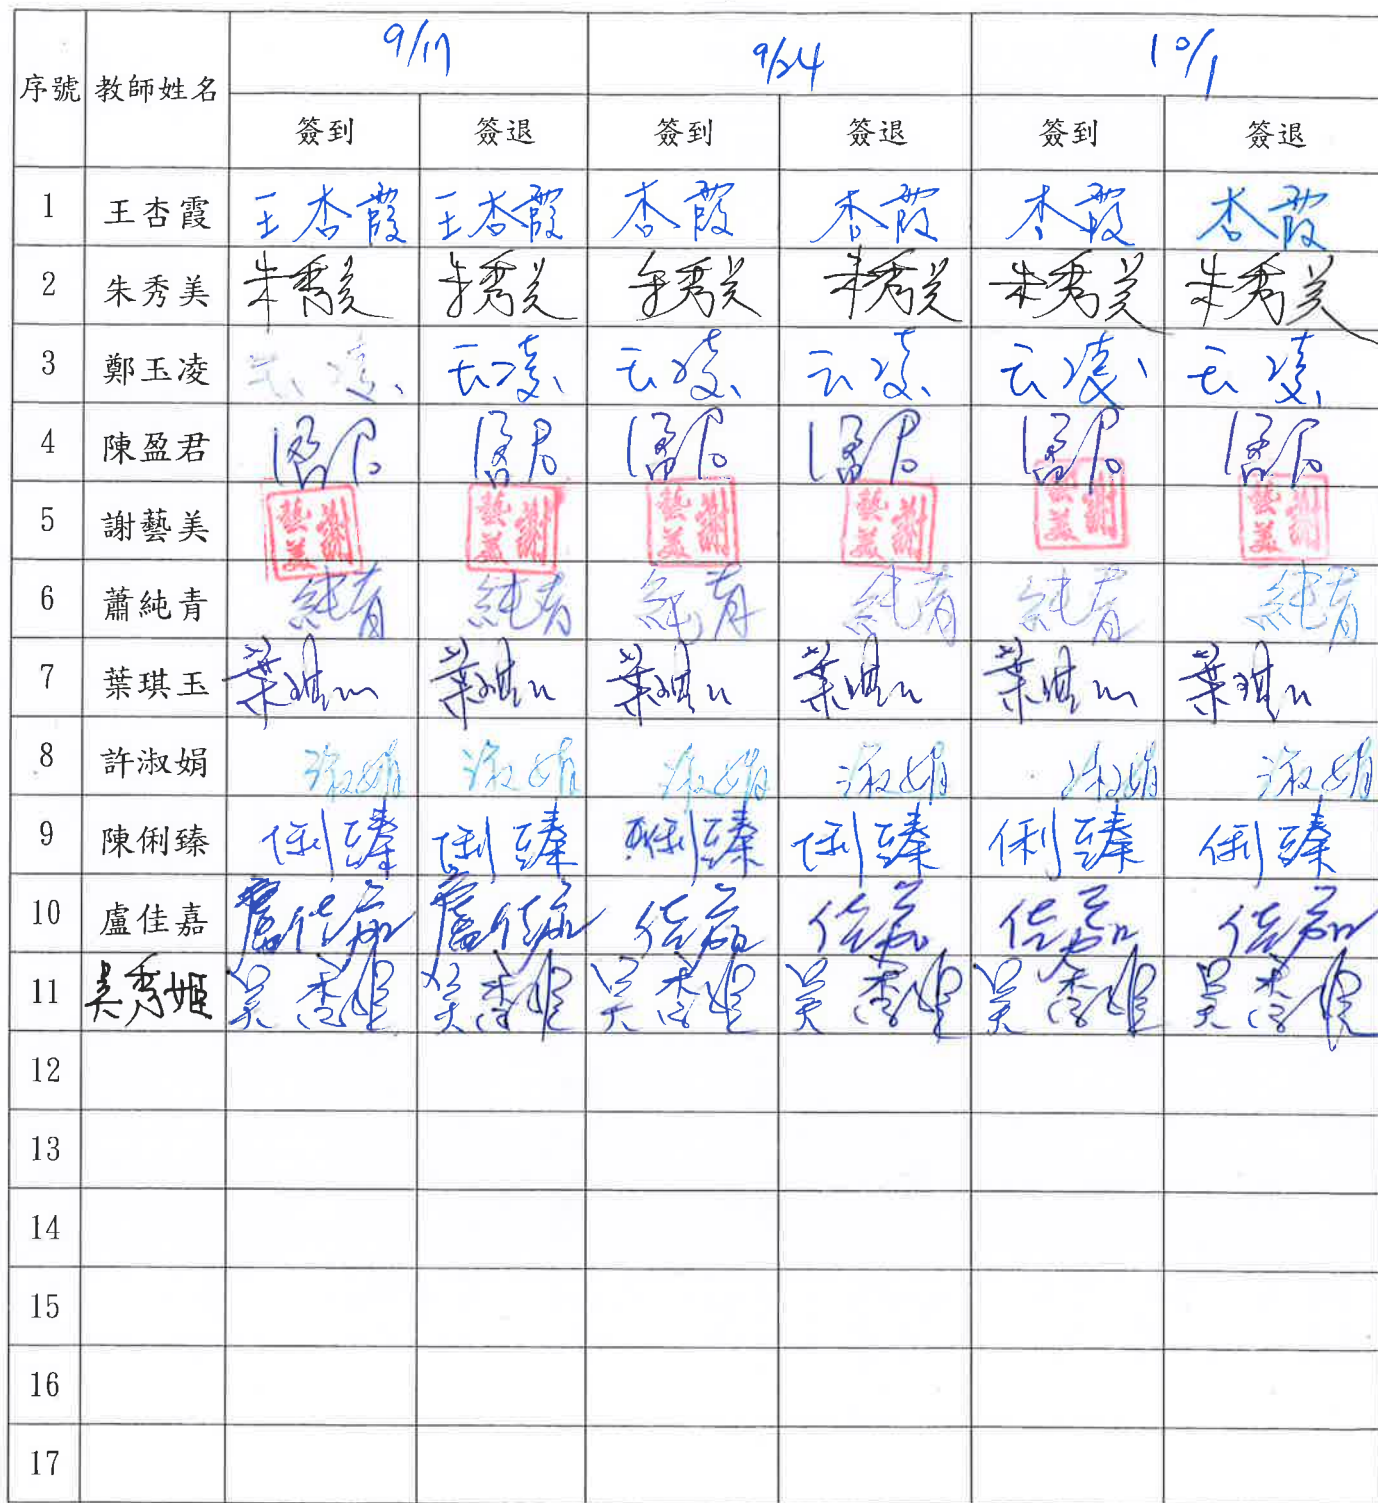 序號 教師姓名 9/17 9/24 10/1
簽到 簽退 簽到 簽退 簽到 簽退
1 王杏霞 王杏霞 王杏霞 杏霞 杏霞 杏霞 杏霞
2 朱秀美 朱秀美 朱秀美 朱秀美 朱秀美 朱秀美 朱秀美
3 鄭玉凌 玉凌 玉凌 玉凌 玉凌 玉凌 玉凌
4 陳盈君 盈君 盈君 盈君 盈君 盈君 盈君
5 謝藝美 謝藝美 謝藝美 謝藝美 謝藝美 謝藝美 謝藝美
6 蕭純青 純青 純青 純青 純青 純青 純青
7 葉琪玉 葉琪玉 葉琪玉 葉琪玉 葉琪玉 葉琪玉 葉琪玉
8 許淑娟 淑娟 淑娟 淑娟 淑娟 淑娟 淑娟
9 陳俐臻 俐臻 俐臻 俐臻 俐臻 俐臻 俐臻
10 盧佳嘉 盧佳嘉 盧佳嘉 佳嘉 佳嘉 佳嘉 佳嘉
11 吳秀姬 吳秀姬 吳秀姬 吳秀姬 吳秀姬 吳秀姬 吳秀姬
12
13
14
15
16
17